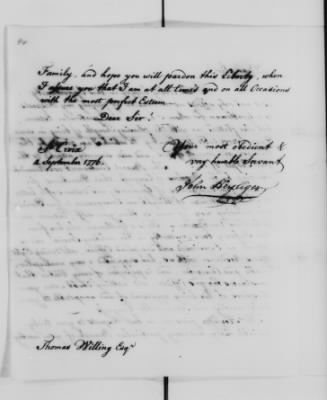 Family, and hope you will pardon this Liberty, when
I assure you that I am at all times and on all Occasions
with the most perfect Esteem
Dear Sir!
St Croix
2 September 1776.
Your most obedient &
very humble Servant
John
Thomas Willing Esqr